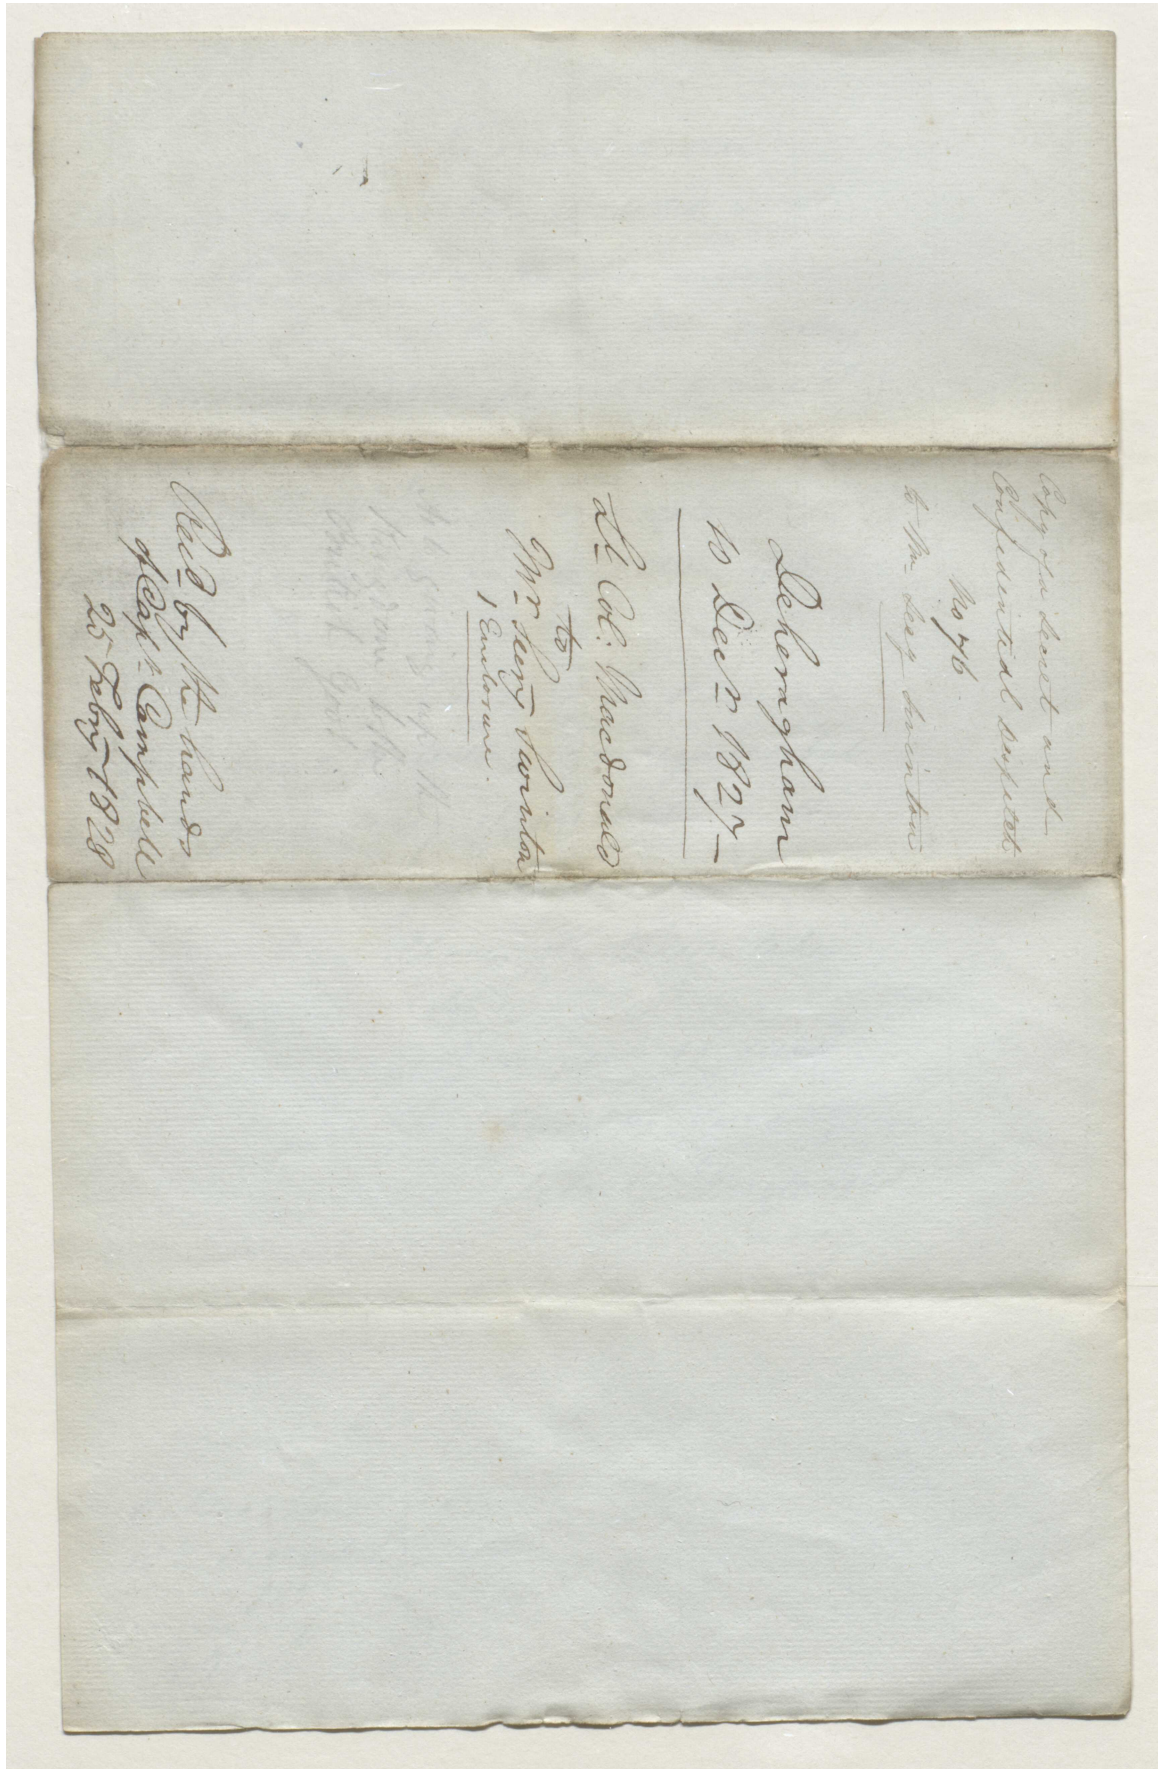 Copy of a Secret and
Confidential despatch
No 76
to Mr. Secy Swinton
Deheragham
10 Decr. 1827 –
Lt. Col: Macdonald
to
Mr. Secry Swinton
1 Enclosure.
up the
by the
British Govt.
Recd. by the hands
of Capt. Campbell
25 Febry 1828